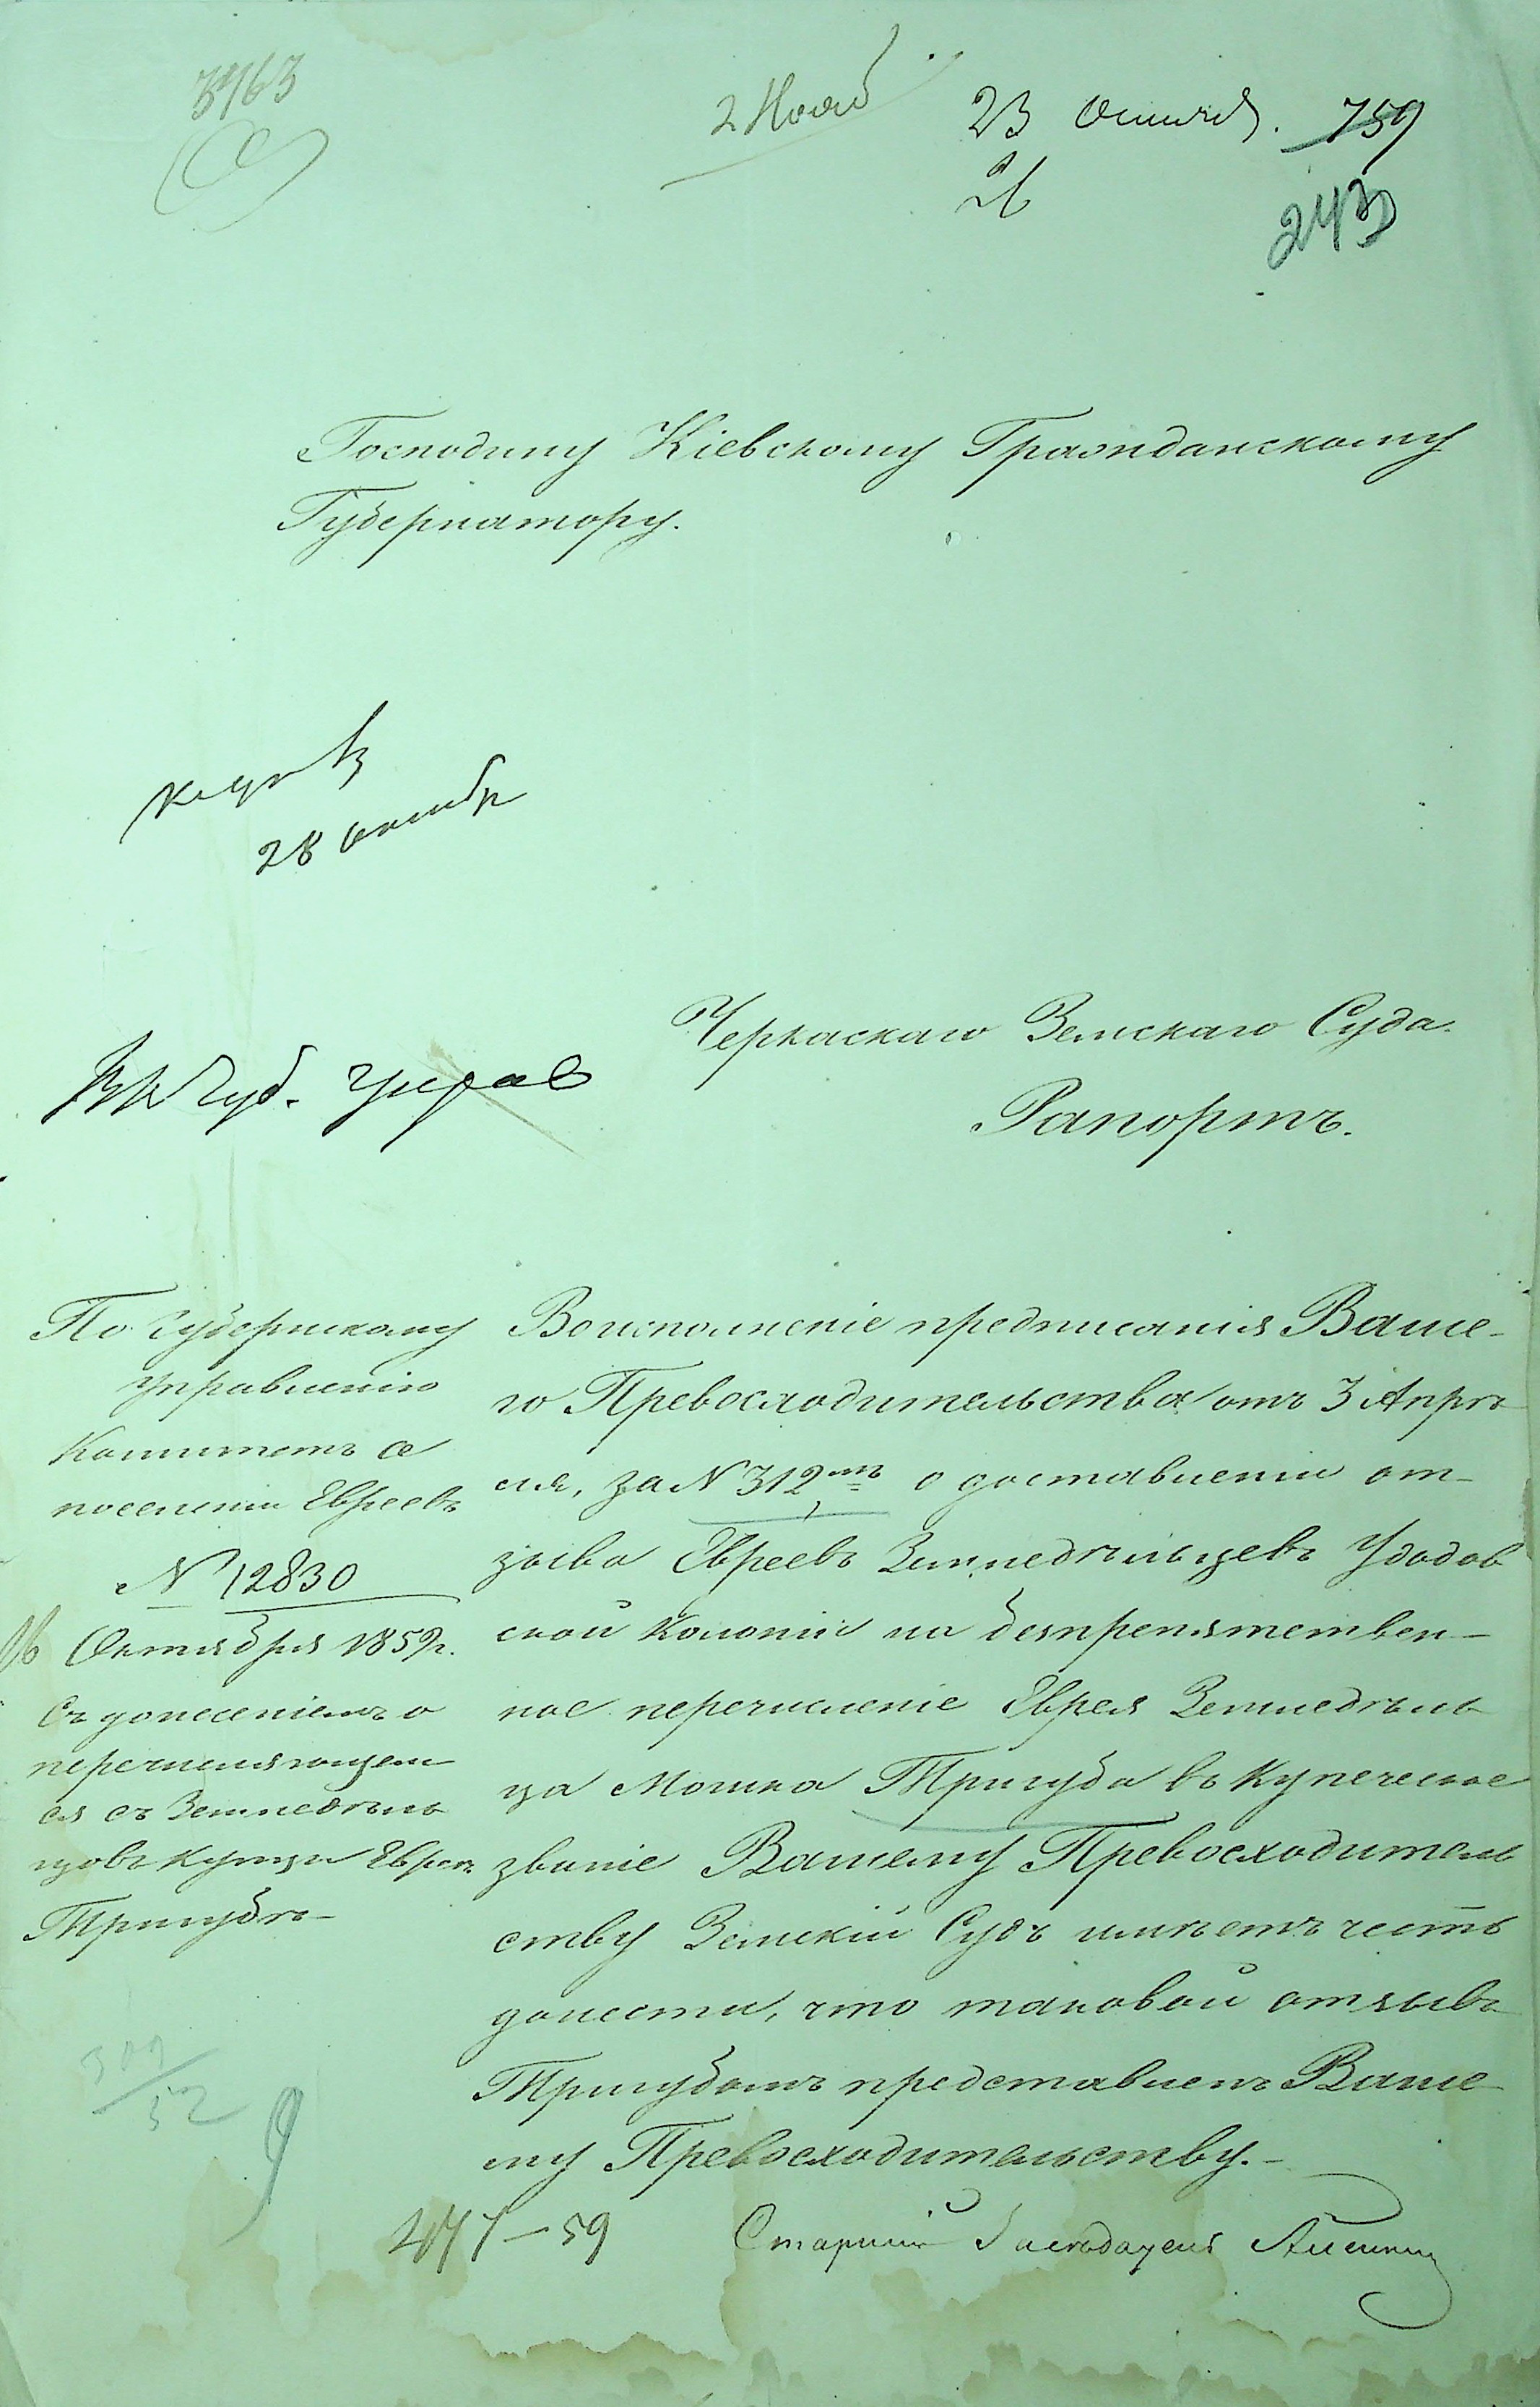 3463
2 Нояб
23 Октяб. 759
26
243
Господину Кіевскому Гражданскому
Губернатору.
28 октябр
Губ. Управ
Черкаскаго Земскаго Суда.
Рапортъ.
По Губернскому
управленію
Комитетъ о
поселеніи Евреевъ
N 12830
16 Октября 1859 г.
Съ донесеніемъ о
перечисляющем
ся съ Земледѣль
цовъ Купцы Евреѣ
Тригубѣ–
Воисполненіе предписанія Ваше-
го Превосходительства отъ 3 Апрѣ
ля, за N 312мъ о доставленіи от-
зыва Евреевъ Земледѣльцевъ Удодов
ской Колоніи на безпрепятствен-
ное перечисленіе Еврея Земледѣль
ца Мошка Тригуба въ Купеческое
званіе Вашему Превосходитель
ству Земскій Судъ имѣетъ честь
донести, что таковой отзывъ
Тригубомъ представленъ Ваше
му Превосходительству.–
309
52
477–59
Старшій Засѣдатель